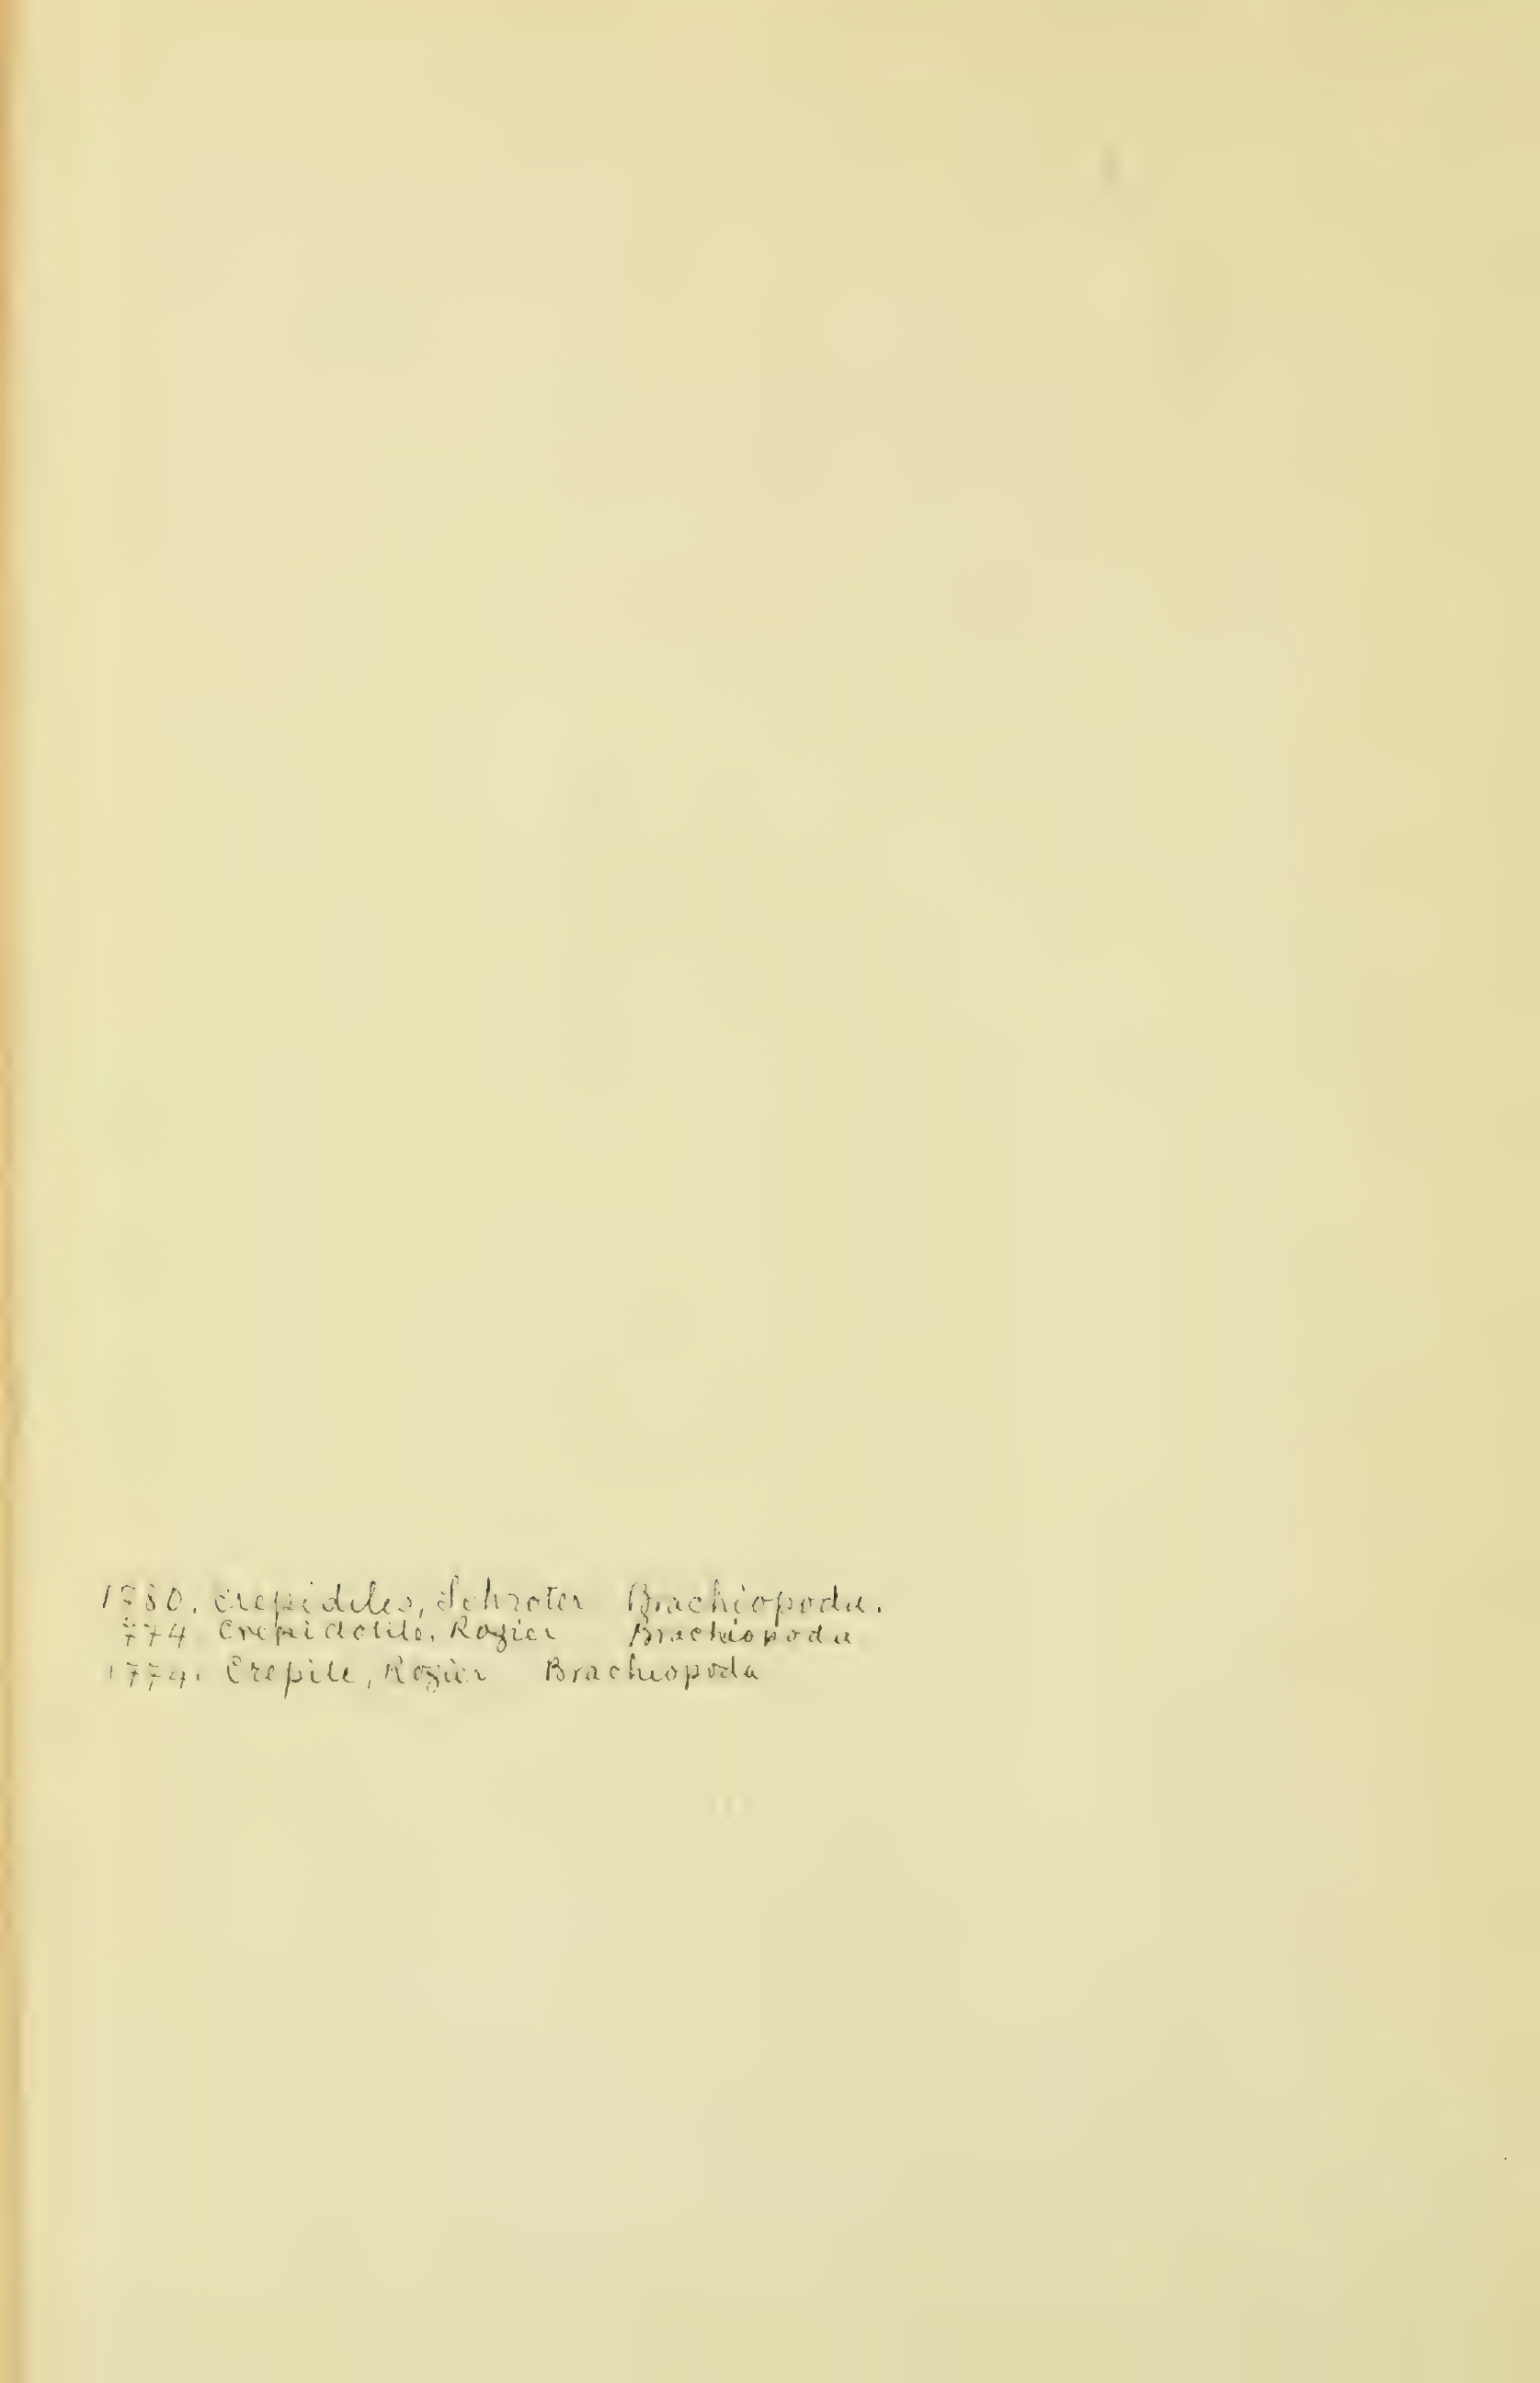 1780. Crepidiles, Schroter Brachiopoda.
1774 Crepidolite, Rozier Brachiopoda
1774. Crepite, Rozier Brachiopoda